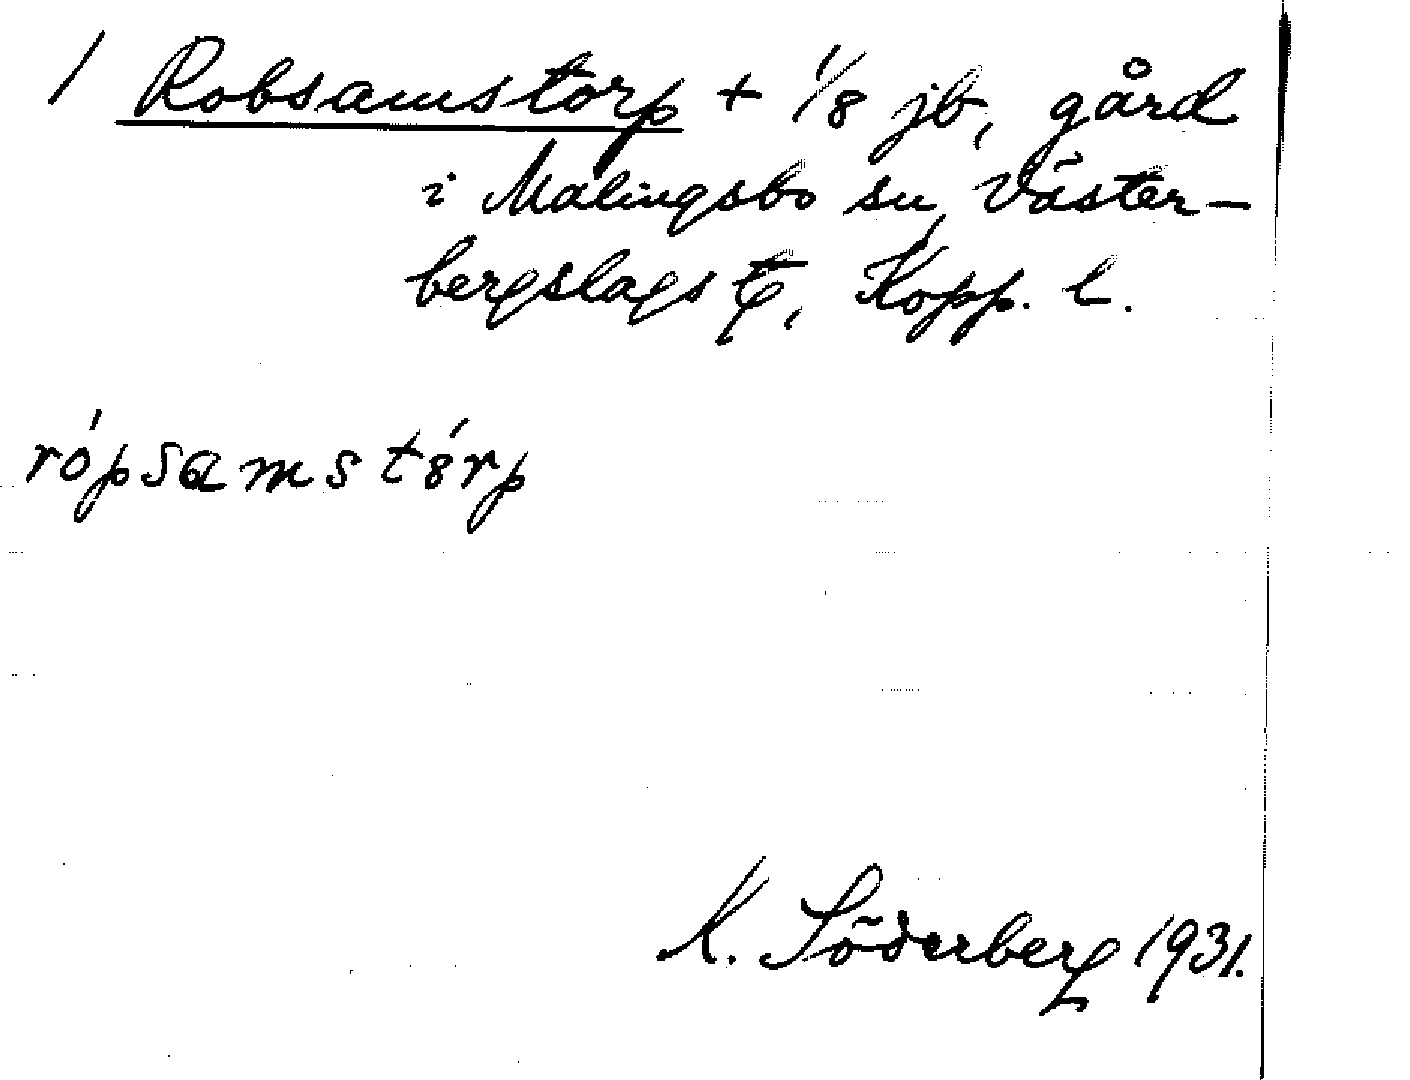 / Robsamstorp + 1/8 jb, gård
i Malingsbo sn, Väster-
bergslags tg, Kopp. l.
rópsamstórp
K. Söderberg 1931.